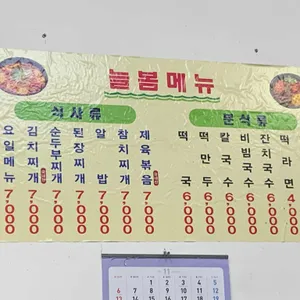 늘봄메뉴
식사류
요일메뉴 7,000
김치찌개 7,000
순두부찌개 7,000
된장찌개 7,000
알밥 7,000
참치찌개 7,000
제육볶음 7,000
분식류
떡국 6,000
떡만두 6,000
칼국수 6,000
비빔국수 6,000
잔치국수 6,000
떡라면 4,000
11